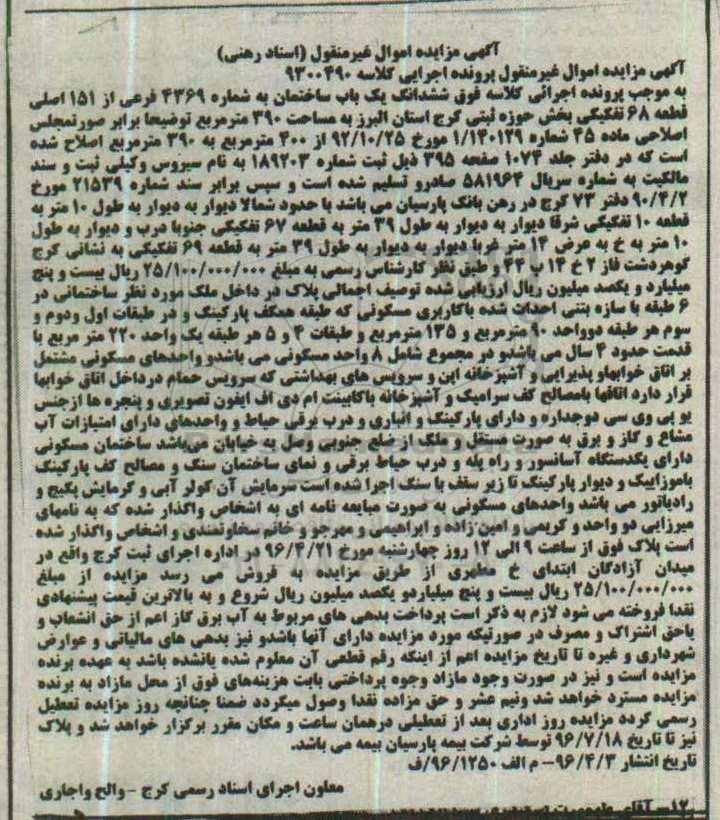 آگهی مزایده اموال غیرمنقول (اسناد رهنی)
آگهی مزایده اموال غیرمنقول پرونده اجرایی کلاسه ۹۳۰۰۴۹۰
به موجب پرونده اجرائی کلاسه فوق ششدانگ یک باب ساختمان به شماره ۴۳۶۹ فرعی از ۱۵۱ اصلی
قطعه ۶۸ تفکیکی بخش حوزه ثبتی کرج استان البرز به مساحت ۳۹۰ مترمربع توضیحا برابر صورتمجلس
اصلاحی ماده ۴۵ شماره ۱/۱۴۰۱۲۹ مورخ ۹۲/۱۰/۲۵ از ۴۰۰ مترمربع به ۳۹۰ مترمربع اصلاح شده
است که در دفتر جلد ۱۰۷۴ صفحه ۳۹۵ ذیل ثبت شماره ۱۸۹۲۰۳ به نام سیروس وکیلی ثبت و سند
مالکیت به شماره سریال ۵۸۱۹۶۴ صادرو تسلیم شده است و سپس برابر سند شماره ۲۱۵۳۹ مورخ
۹۰/۴/۲ دفتر ۷۳ کرج در رهن بانک پارسیان می باشد با حدود شمالا دیوار به دیوار به طول ۱۰ متر به
قطعه ۱۰ تفکیکی شرقا دیوار به دیوار به طول ۳۹ متر به قطعه ۶۷ تفکیکی جنوبا درب و دیوار به طول
۱۰ متر به خ به عرض ۱۴ متر غربا دیوار به دیوار به طول ۳۹ متر به قطعه ۶۹ تفکیکی به نشانی کرج
گوهردشت فاز ۲ خ ۱۴ پ ۴۴ و طبق نظر کارشناس رسمی به مبلغ ۲۵/۱۰۰/۰۰۰/۰۰۰ ریال بیست و پنج
میلیارد و یکصد میلیون ریال ارزیابی شده توصیف اجمالی پلاک در داخل ملک مورد نظر ساختمانی در
۶ طبقه با سازه بتنی احداث شده باکاربری مسکونی که طبقه همکف پارکینگ و در طبقات اول ودوم و
سوم هر طبقه دوواحد ۹۰ مترمربع و ۱۳۵ مترمربع و طبقات ۴ و ۵ هر طبقه یک واحد ۲۲۰ متر مربع با
قدمت حدود ۴ سال می باشدو در مجموع شامل ۸ واحد مسکونی می باشدو واحدهای مسکونی مشتمل
بر اتاق خوابهاو پذیرایی و آشپزخانه اپن و سرویس های بهداشتی که سرویس حمام درداخل اتاق خوابها
قرار دارد اتاقها بامصالح کف سرامیک و آشپزخانه باکابینت ام دی اف ایفون تصویری و پنجره ها ازجنس
یو پی وی سی دوجداره و دارای پارکینگ و انباری و درب برقی حیاط و واحدهای دارای امتیازات آب
مشاع و گاز و برق به صورت مستقل و ملک از ضلع جنوبی وصل به خیابان می‌باشد ساختمان مسکونی
دارای یکدستگاه آسانسور و راه پله و درب حیاط برقی و نمای ساختمان سنگ و مصالح کف پارکینگ
باموزاییک و دیوار پارکینگ تا زیر سقف با سنگ اجرا شده است سرمایش آن کولر آبی و گرمایش پکیج و
رادیاتور می باشد واحدهای مسکونی به صورت مبایعه نامه ای به اشخاص واگذار شده که به نامهای
میرزایی دو واحد و کریمی و امین زاده و ابراهیمی و مهرجو و خانم سخاوتمندی و اشخاص واگذار شده
است پلاک فوق از ساعت ۹ الی ۱۲ روز چهارشنبه مورخ ۹۶/۴/۲۱ در اداره اجرای ثبت کرج واقع در
میدان آزادگان ابتدای خ مطهری از طریق مزایده به فروش می رسد مزایده از مبلغ
۲۵/۱۰۰/۰۰۰/۰۰۰ ریال بیست و پنج میلیاردو یکصد میلیون ریال شروع و به بالاترین قیمت پیشنهادی
نقدا فروخته می شود لازم به ذکر است پرداخت بدهی های مربوط به آب برق گاز اعم از حق انشعاب و
یاحق اشتراک و مصرف در صورتیکه مورد مزایده دارای آنها باشدو نیز بدهی های مالیاتی و عوارض
شهرداری و غیره تا تاریخ مزایده اعم از اینکه رقم قطعی آن معلوم شده یانشده باشد به عهده برنده
مزایده است و نیز در صورت وجود مازاد وجوه پرداختی بابت هزینه‌های فوق از محل مازاد به برنده
مزایده مسترد خواهد شد ونیم عشر و حق مزاده نقدا وصول میگردد ضمنا چنانچه روز مزایده تعطیل
رسمی گردد مزایده روز اداری بعد از تعطیلی درهمان ساعت و مکان مقرر برگزار خواهد شد و پلاک
نیز تا تاریخ ۹۶/۷/۱۸ توسط شرکت بیمه پارسیان بیمه می باشد.
تاریخ انتشار ۹۶/۴/۳- م الف ۹۶/۱۲۵۰/ف
معاون اجرای اسناد رسمی کرج -والح واجاری
۱۲-آقای